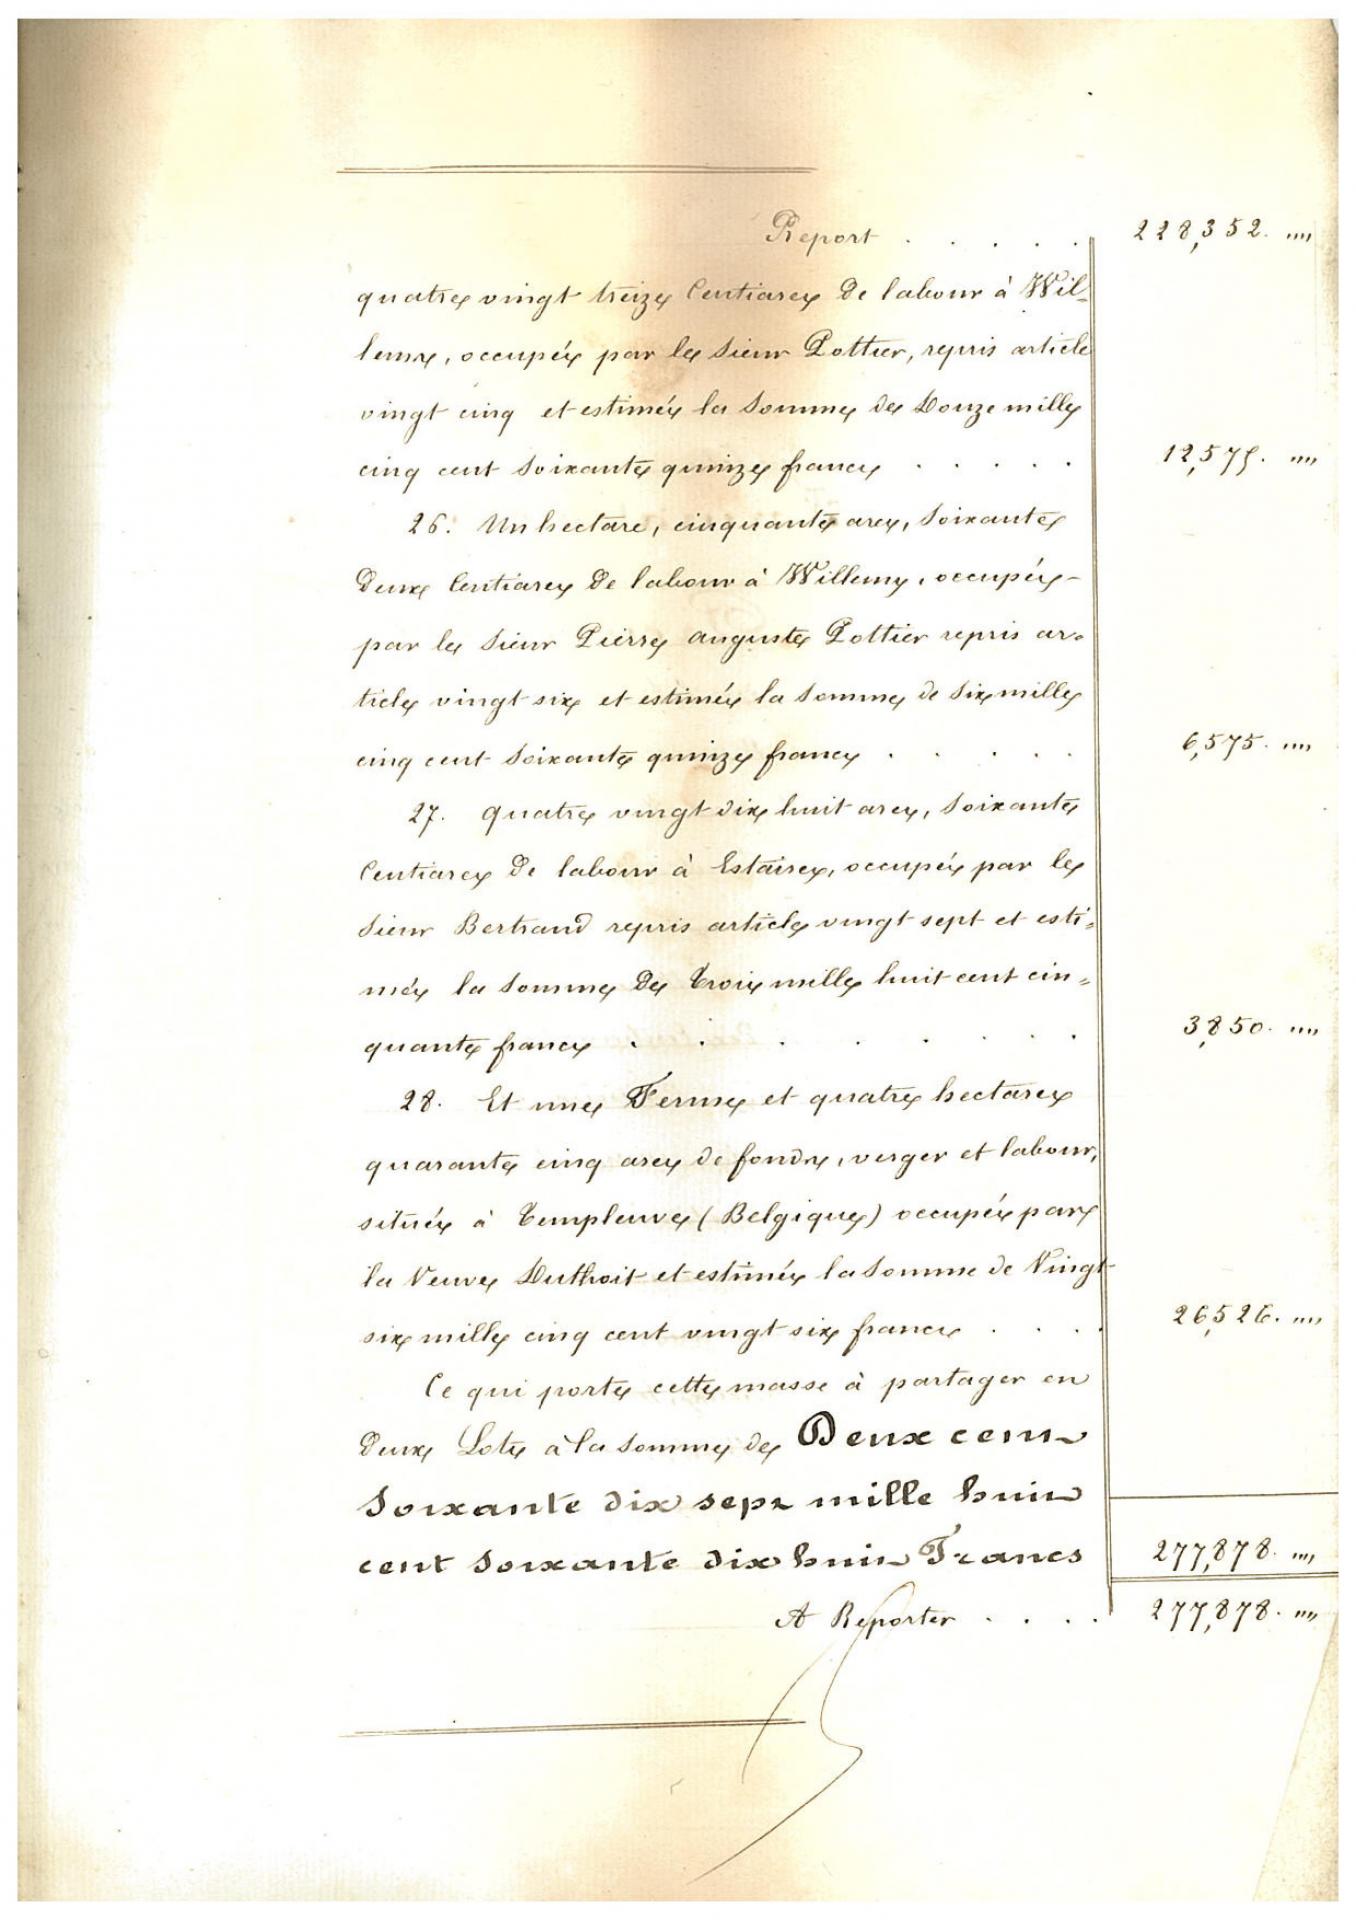 Report . . . . . 228,352. "
quatre vingt treize Centiares de labour à Wil-
lems, occupés par le sieur Pottier, repris article
vingt cinq et estimés la somme de Douze mille
cinq cent soixante quinze francs . . . . . 12,575. "
26. Un hectare, cinquante ares, soixante
deux Centiares de labour à Willems, occupés -
par le sieur Pierre auguste Pottier repris ar-
ticle vingt six et estimés la somme de six mille
cinq cent soixante quinze francs . . . . . 6,575. "
27. Quatre vingt dix huit ares, soixante
Centiares de labour à Estaires, occupés par le
sieur Bertrand repris article vingt sept et esti=
més la somme de Trois mille huit cent cin=
quante francs . . . . . . . 3,850. "
28. Et une Ferme et quatre hectares
quarante cinq ares de fonds, verger et labour,
situés à Templeuve (Belgique) occupés par
la Veuve Duthoit et estimés la somme de Vingt
six mille cinq cent vingt six francs . . . . 26,526. "
Ce qui porte cette masse à partager en
Deux Lots à la somme de Deux cent
soixante dix sept mille huit
cent soixante dix huit Francs 277,878. "
A Reporter . . . . 277,878. "